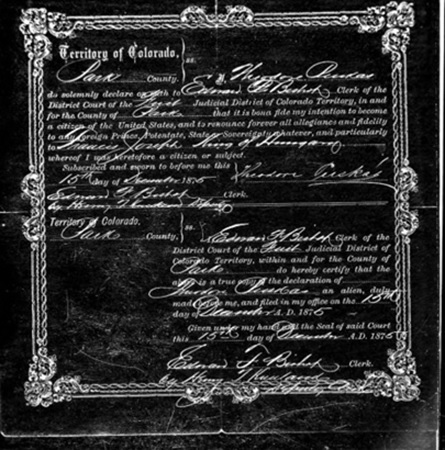 Territory of Colorado,
Park County. ss.
I, Theodore Puskas
do solemnly declare on oath to Edwin F. Bishop Clerk of the
District Court of the First Judicial District of Colorado Territory, in and
for the County of Park that it is bona fide my intention to become
a citizen of the United States, and to renounce forever all allegiance and fidelity
to any Foreign Prince, Potentate, State or Sovereignty whatever, and particularly
to Francis Joseph King of Hungary
whereof I was heretofore a citizen or subject.
Subscribed and sworn to before me this
15th day of December 1875 Theodore Puskas
Clerk.
Territory of Colorado.
Park County, ss.
I, Clerk of the
District Court of the First Judicial District of
Colorado Territory, within and for the County of
Park do hereby certify that the
above is a true copy of the declaration of
Theodore Puskas an alien, duly
made before me, and filed in my office on the 15th
day of December A.D. 1875
Given under my hand and the Seal of said Court
this 15th day of December A.D. 1875
Clerk.
by